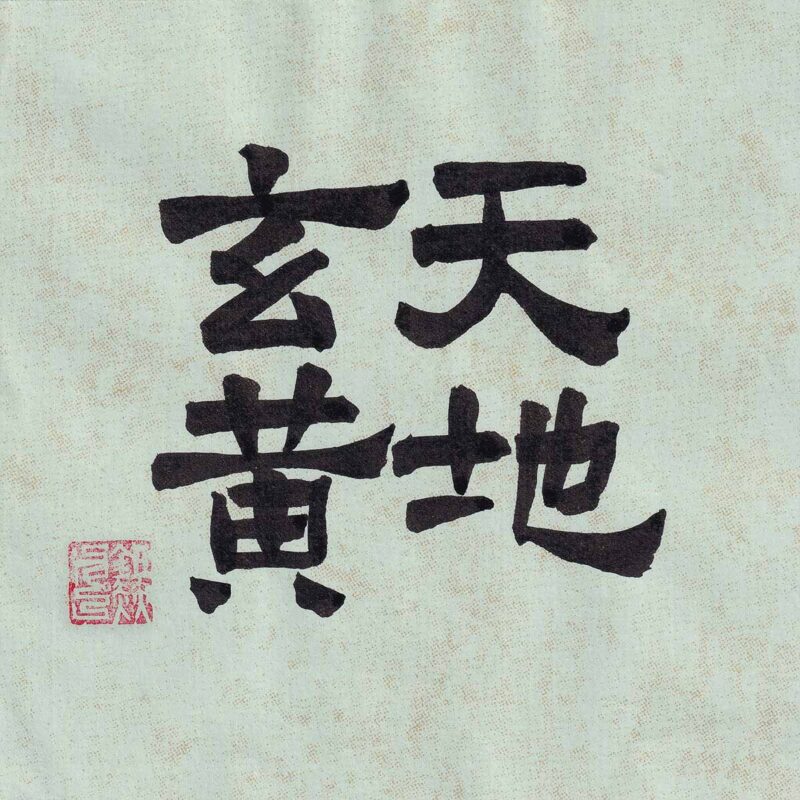 天地
玄黄